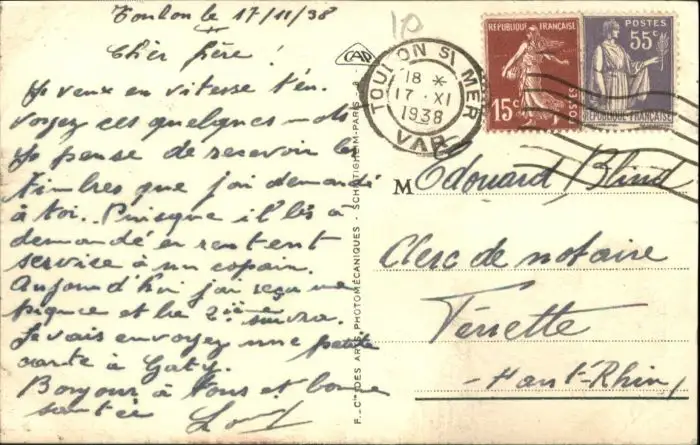 Toulon le 17/11/38
Cher frère !
Je veux en vitesse t'en-
voyez ces quelques mots
Je pense de recevoir les
timbres que j'ai demandé
à toi. Puisque il les a
demandé en rentent
service à un copain.
Aujourd'hui j'ai reçu une
pique et la 2ième suivra.
Je vais envoyez une petite
carte à Gaty.
Bonjour à tous et bonne
santée
CAP
F. - Cie DES ARTS PHOTOMÉCANIQUES - SCHILTIGHEIM-PARIS -
TOULON S/ MER
18 *
17 · XI
1938
VAR
RÉPUBLIQUE FRANÇAISE
15c
POSTES
POSTES
55c
RÉPUBLIQUE FRANÇAISE
M Édouard Blind
Clerc de notaire
Ferrette
- Haut-Rhin